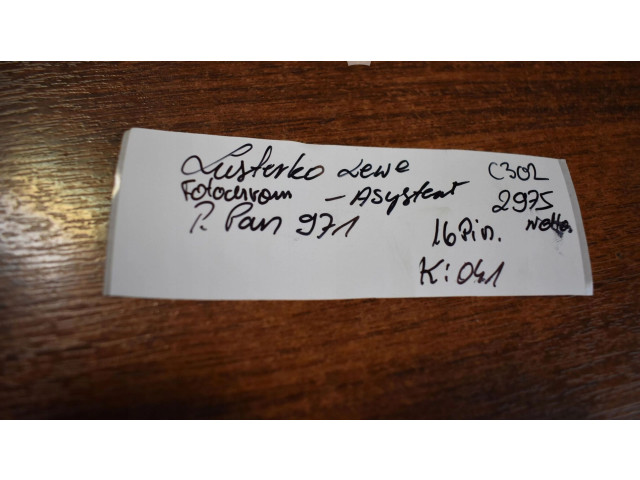 Lusterko Lewe C302
Fotochrom - Asystent 2975
P. Pan 971 16 Pin. netto
K: 041